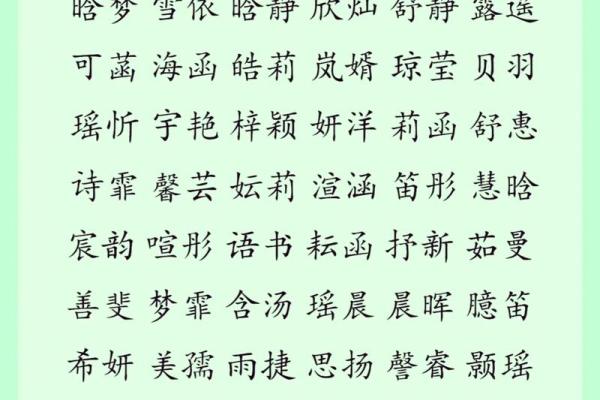 晗梦 雪依 晗静 欣灿 舒静 露遥
可菡 海函 皓莉 岚婿 琼莹 贝羽
瑶忻 宇艳 梓颖 妍洋 莉函 舒惠
诗霏 馨芸 妘莉 渲涵 笛彤 慧晗
宸韵 喧彤 语书 耘函 抒新 茹曼
善斐 梦霏 含汤 瑶晨 晨晖 臆笛
希妍 美孺 雨捷 思扬 謦睿 颢瑶